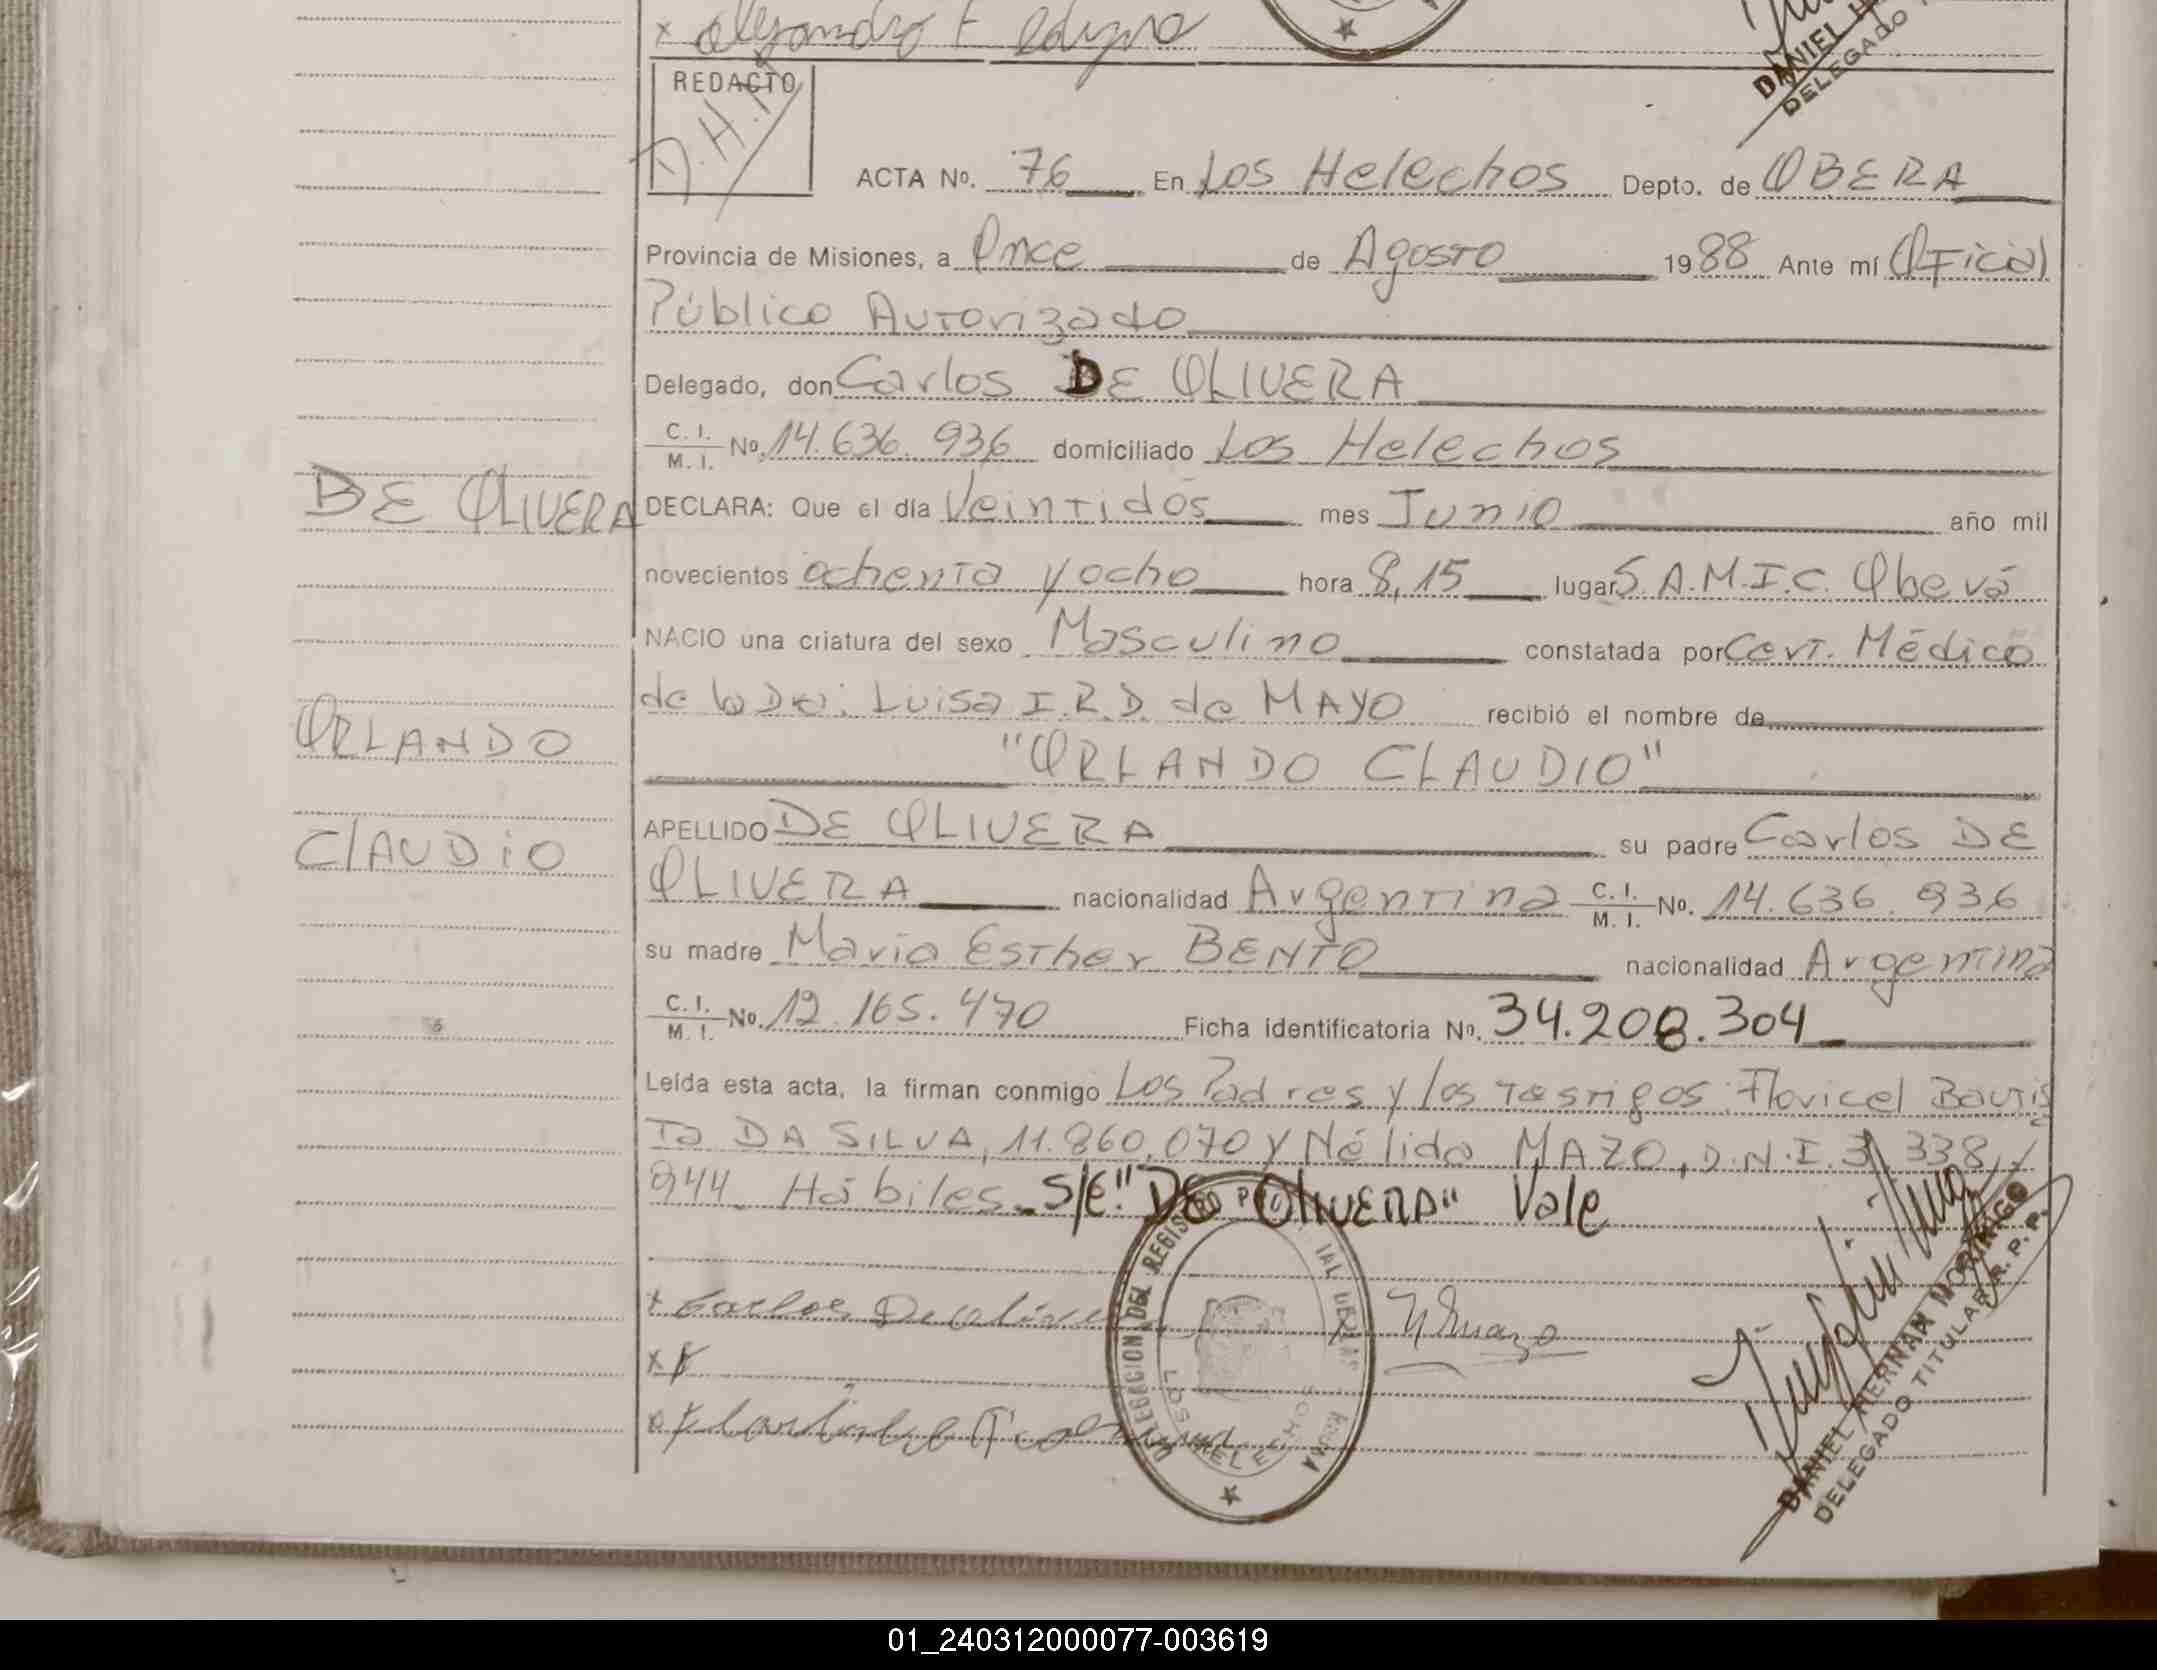 x Alejandro F
DANIEL H
DELEGADO
REDACTO
D.H.N
ACTA Nº. 76 En Los Helechos Depto. de OBERA
Provincia de Misiones, a Once de Agosto 1988 Ante mí Oficial
Público Autorizado
Delegado, don Carlos DE OLIVERA
C. I. M. I. Nº. 14.636.936 domiciliado Los Helechos
DE OLIVERA
DECLARA: Que el día Veintidós mes Junio año mil
novecientos ochenta y ocho hora 8,15 lugar S.A.M.I.C. Oberá
NACIO una criatura del sexo Masculino constatada por Cert. Médico
de la Dra. Luisa I.R.D. de MAYO recibió el nombre de
ORLANDO
"ORLANDO CLAUDIO"
CLAUDIO
APELLIDO DE OLIVERA su padre Carlos DE
OLIVERA nacionalidad Argentina C. I. M. I. Nº. 14.636.936
su madre María Esther BENTO nacionalidad Argentina
C. I. M. I. Nº. 12.165.470 Ficha identificatoria Nº. 34.208.304
Leída esta acta, la firman conmigo Los Padres y los testigos: Floricel Bautis
ta DA SILVA, 11.860.070 y Nélida MAZO, D.N.I. 3.338,
944 Hábiles. S/E "DE OLIVERA" Vale
x Carlos De olivera
x
DELEGACION DEL REGISTRO
LOS HELECHOS
DANIEL HERNAN MORINIGO
DELEGADO TITULAR R. P. P.
01_240312000077-003619